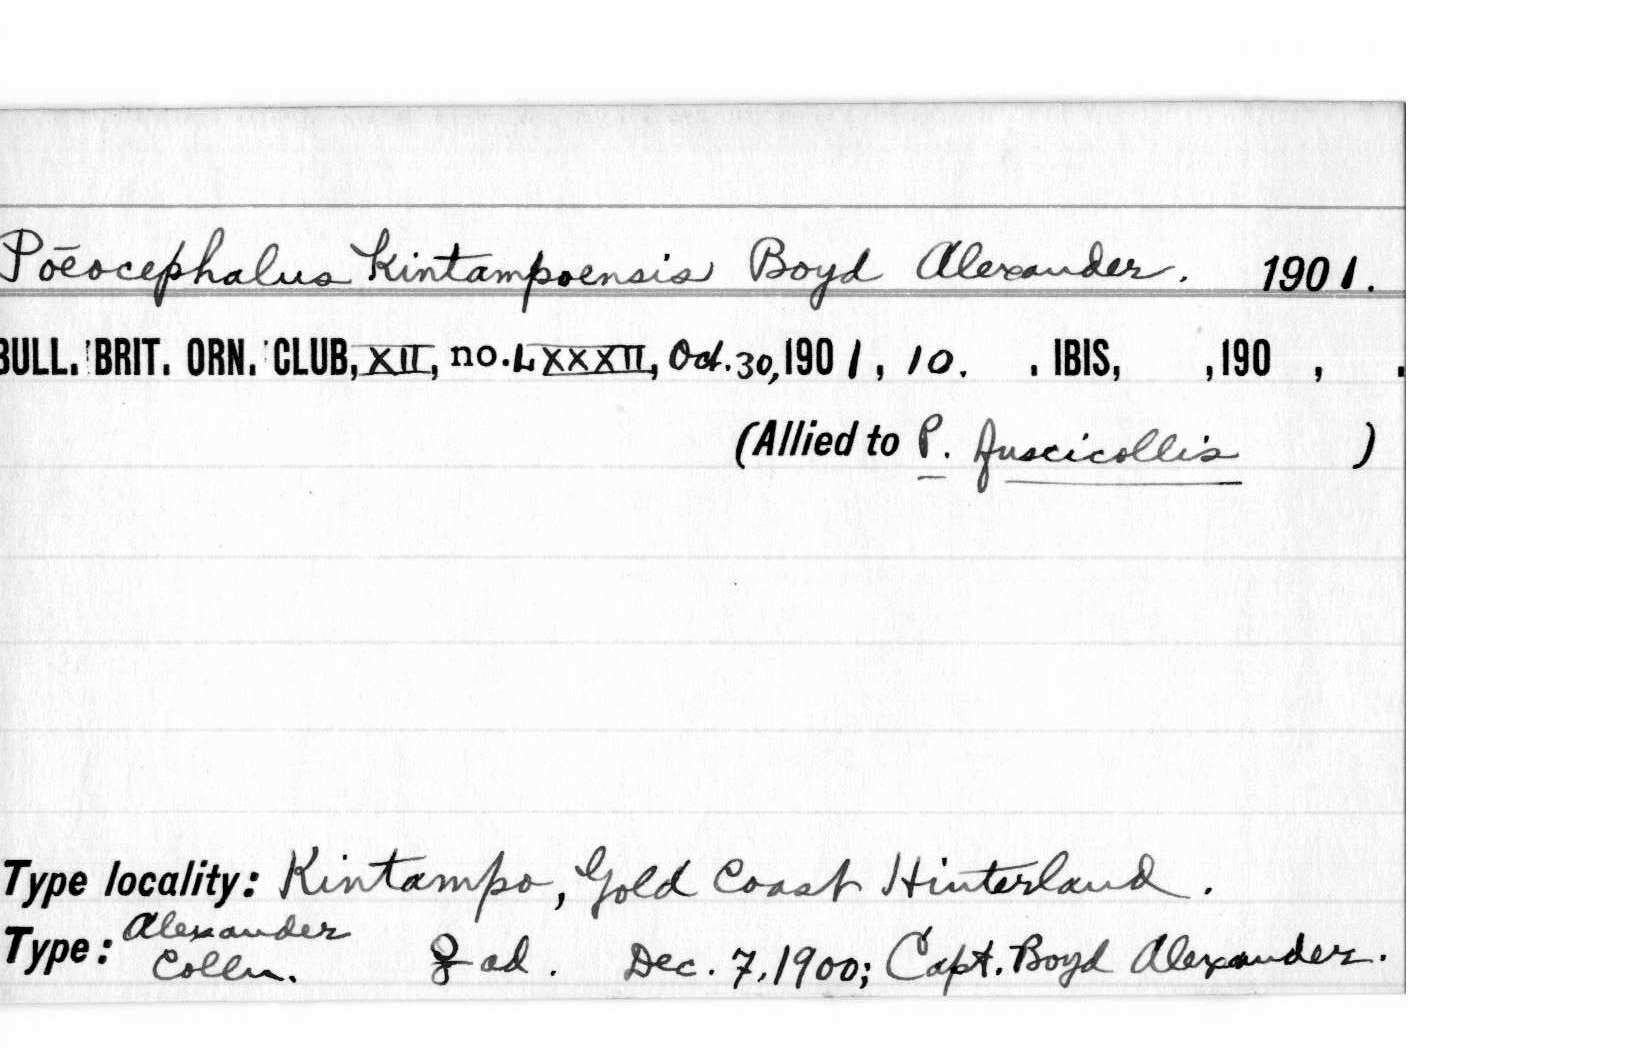 Pōēocephalus Kintampoensis Boyd Alexander. 1901.
BULL. BRIT. ORN. CLUB, XII, no. LXXXII, Oct. 30, 1901, 10. . IBIS, ,190 , .
(Allied to P. fuscicollis )
Type locality: Kintampo, Gold Coast Hinterland.
Type: Alexander Colln. ♀ ad. Dec. 7, 1900; Capt. Boyd Alexander.